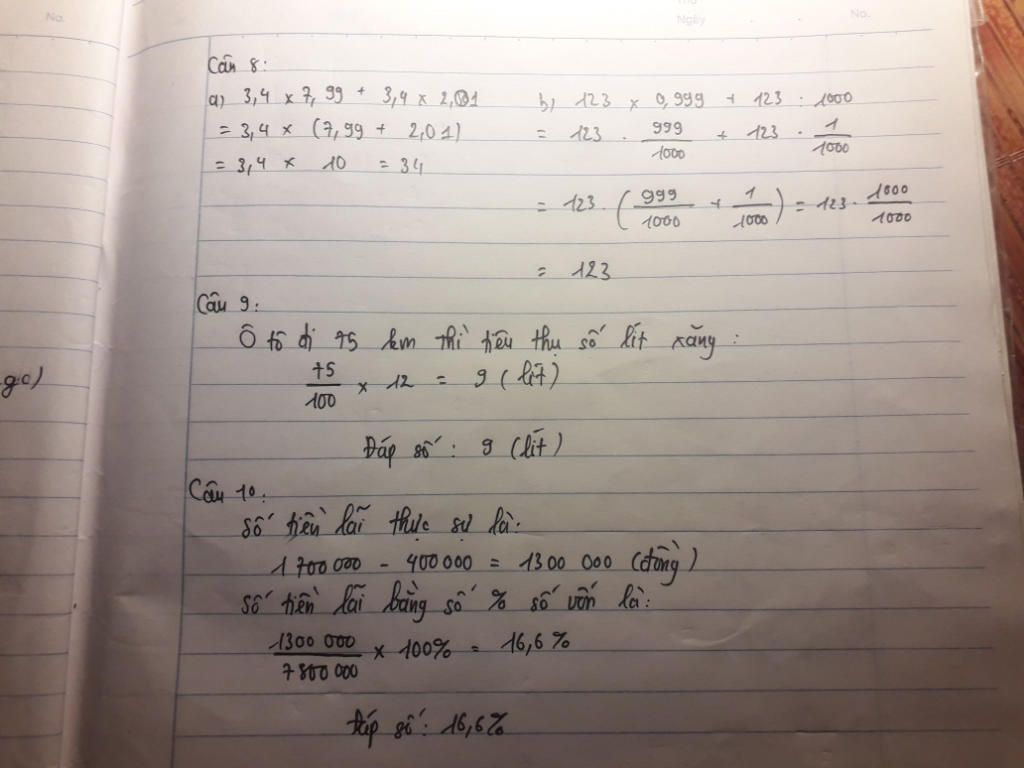 No.
Thứ
Ngày
No.
Câu 8:
a) 3,4 × 7,99 + 3,4 × 2,01
= 3,4 × (7,99 + 2,01)
= 3,4 × 10 = 34
b) 123 × 0,999 + 123 : 1000
= 123 . 999/1000 + 123 . 1/1000
= 123 . (999/1000 + 1/1000) = 123 . 1000/1000
= 123
Câu 9:
Ô tô đi 75 km thì tiêu thụ số lít xăng :
75/100 × 12 = 9 (lít)
Đáp số : 9 (lít)
Câu 10:
Số tiền lãi thực sự là:
1 700 000 - 400 000 = 1300 000 (đồng)
Số tiền lãi bằng số % số vốn là:
1300 000/7800 000 × 100% = 16,6 %
Đáp số : 16,6%